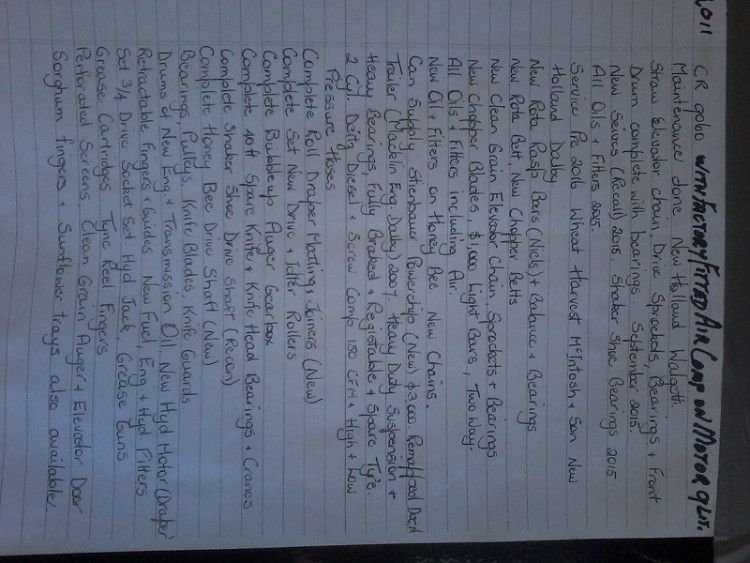 2011
CR 9060 WITH FACTORY FITTED AIR COMP ON MOTOR 9 LIT.
Maintenance done New Holland Walgett.
Straw Elevator chain, Drive Sprockets, Bearings + Front
Drum complete with bearings September 2015.
New Seives (Recall) 2015 Shaker Shoe Bearings 2015.
All Oils + Filters 2015.
Service Pre 2016 Wheat Harvest McIntosh + Son New
Holland Dalby
New Rota Rasp Bars (Nick's) + Balance + Bearings
New Rota Belt New Chopper Belts
New Clean Grain Elevator Chain, Sprockets + Bearings
New Chopper Blades, $1,000 Light Bars, Two Way.
All Oils + Filters including Air
New Oil + Filters on Honey Bee New Chains.
Can Supply Stienbauer Powerchip (New) $3,000. Remapped
Trailer (Macklin Eng. Dalby) 2007. Heavy Duty Suspension +
Heavy Bearings Fully Braked + Registable + Spare Tyre.
2 Cyl. Deutz Diesel + Screw Comp 130 CFM + High + Low
Pressure Hoses
Complete Roll Draper Matting, Joiners (New)
Complete Set New Drive + Idler Rollers
Complete Bubble up Auger Gearbox
Complete 40ft Spare Knife + Knife Head Bearings + Cranes
Complete Shaker Shoe Drive Shaft (Recon)
Complete Honey Bee Drive Shaft (New)
Bearings, Pulleys, Knife Blades, Knife Guards
Drums of New Eng + Transmission Oil, New Hyd Motor (Draper)
Retractable Fingers + Guides New Fuel, Eng + Hyd Filters
Set 3/4 Drive Socket Set. Hyd Jack, Grease Guns
Grease Cartridges Tyne Reel Fingers
Perforated Screens Clean Grain Auger + Elevator Door
Sorghum fingers + Sunflower trays also available,